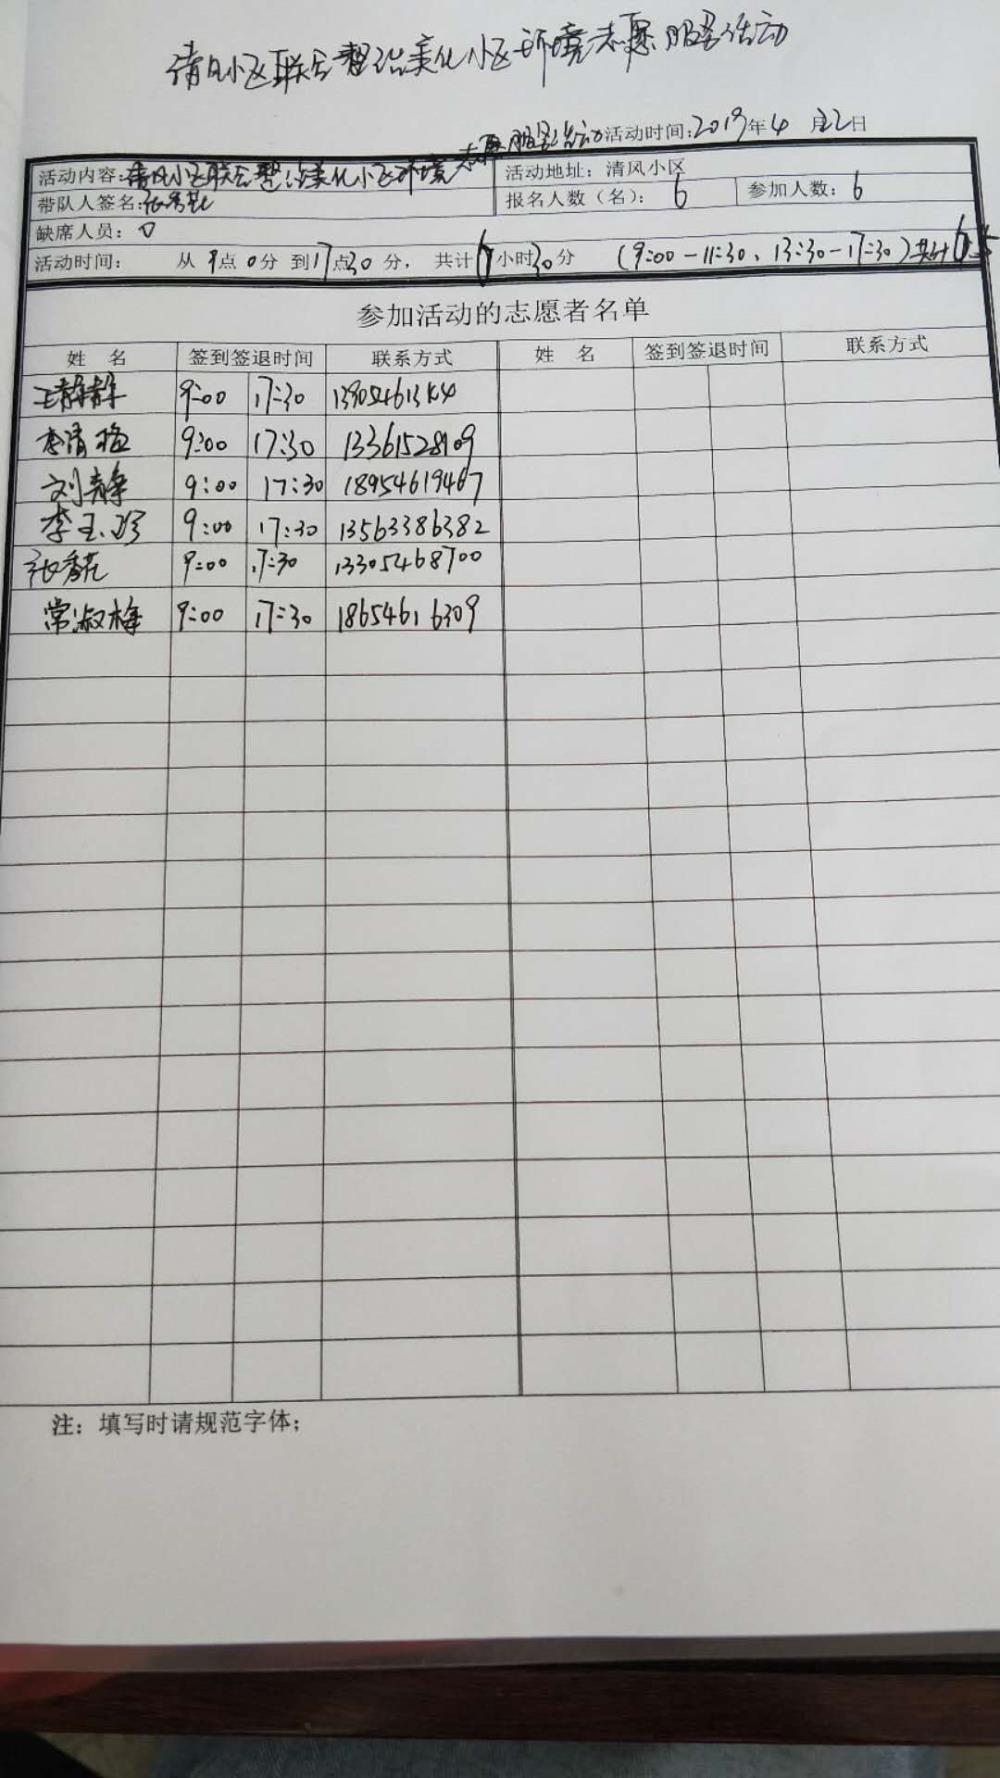 清风小区联合整治美化小区环境志愿服务活动
活动时间:2019年4月22日
活动内容:清风小区联合整治美化小区环境志愿服务活动
活动地址：清风小区
带队人签名:张秀花
报名人数（名）： 6
参加人数： 6
缺席人员：0
活动时间： 从 9点 0分 到17点30分， 共计6小时30分 (9:00-11:30、13:30-17:30)共计6.5
参加活动的志愿者名单
姓 名 签到签退时间 联系方式 姓 名 签到签退时间 联系方式
王静静 9:00 17:30
李清梅 9:00 17:30 13361528109
刘静 9:00 17:30 18954619467
李玉珍 9:00 17:30 13563386382
张秀花 9:00 17:30 13305468700
常淑梅 9:00 17:30 18654616309
注：填写时请规范字体；